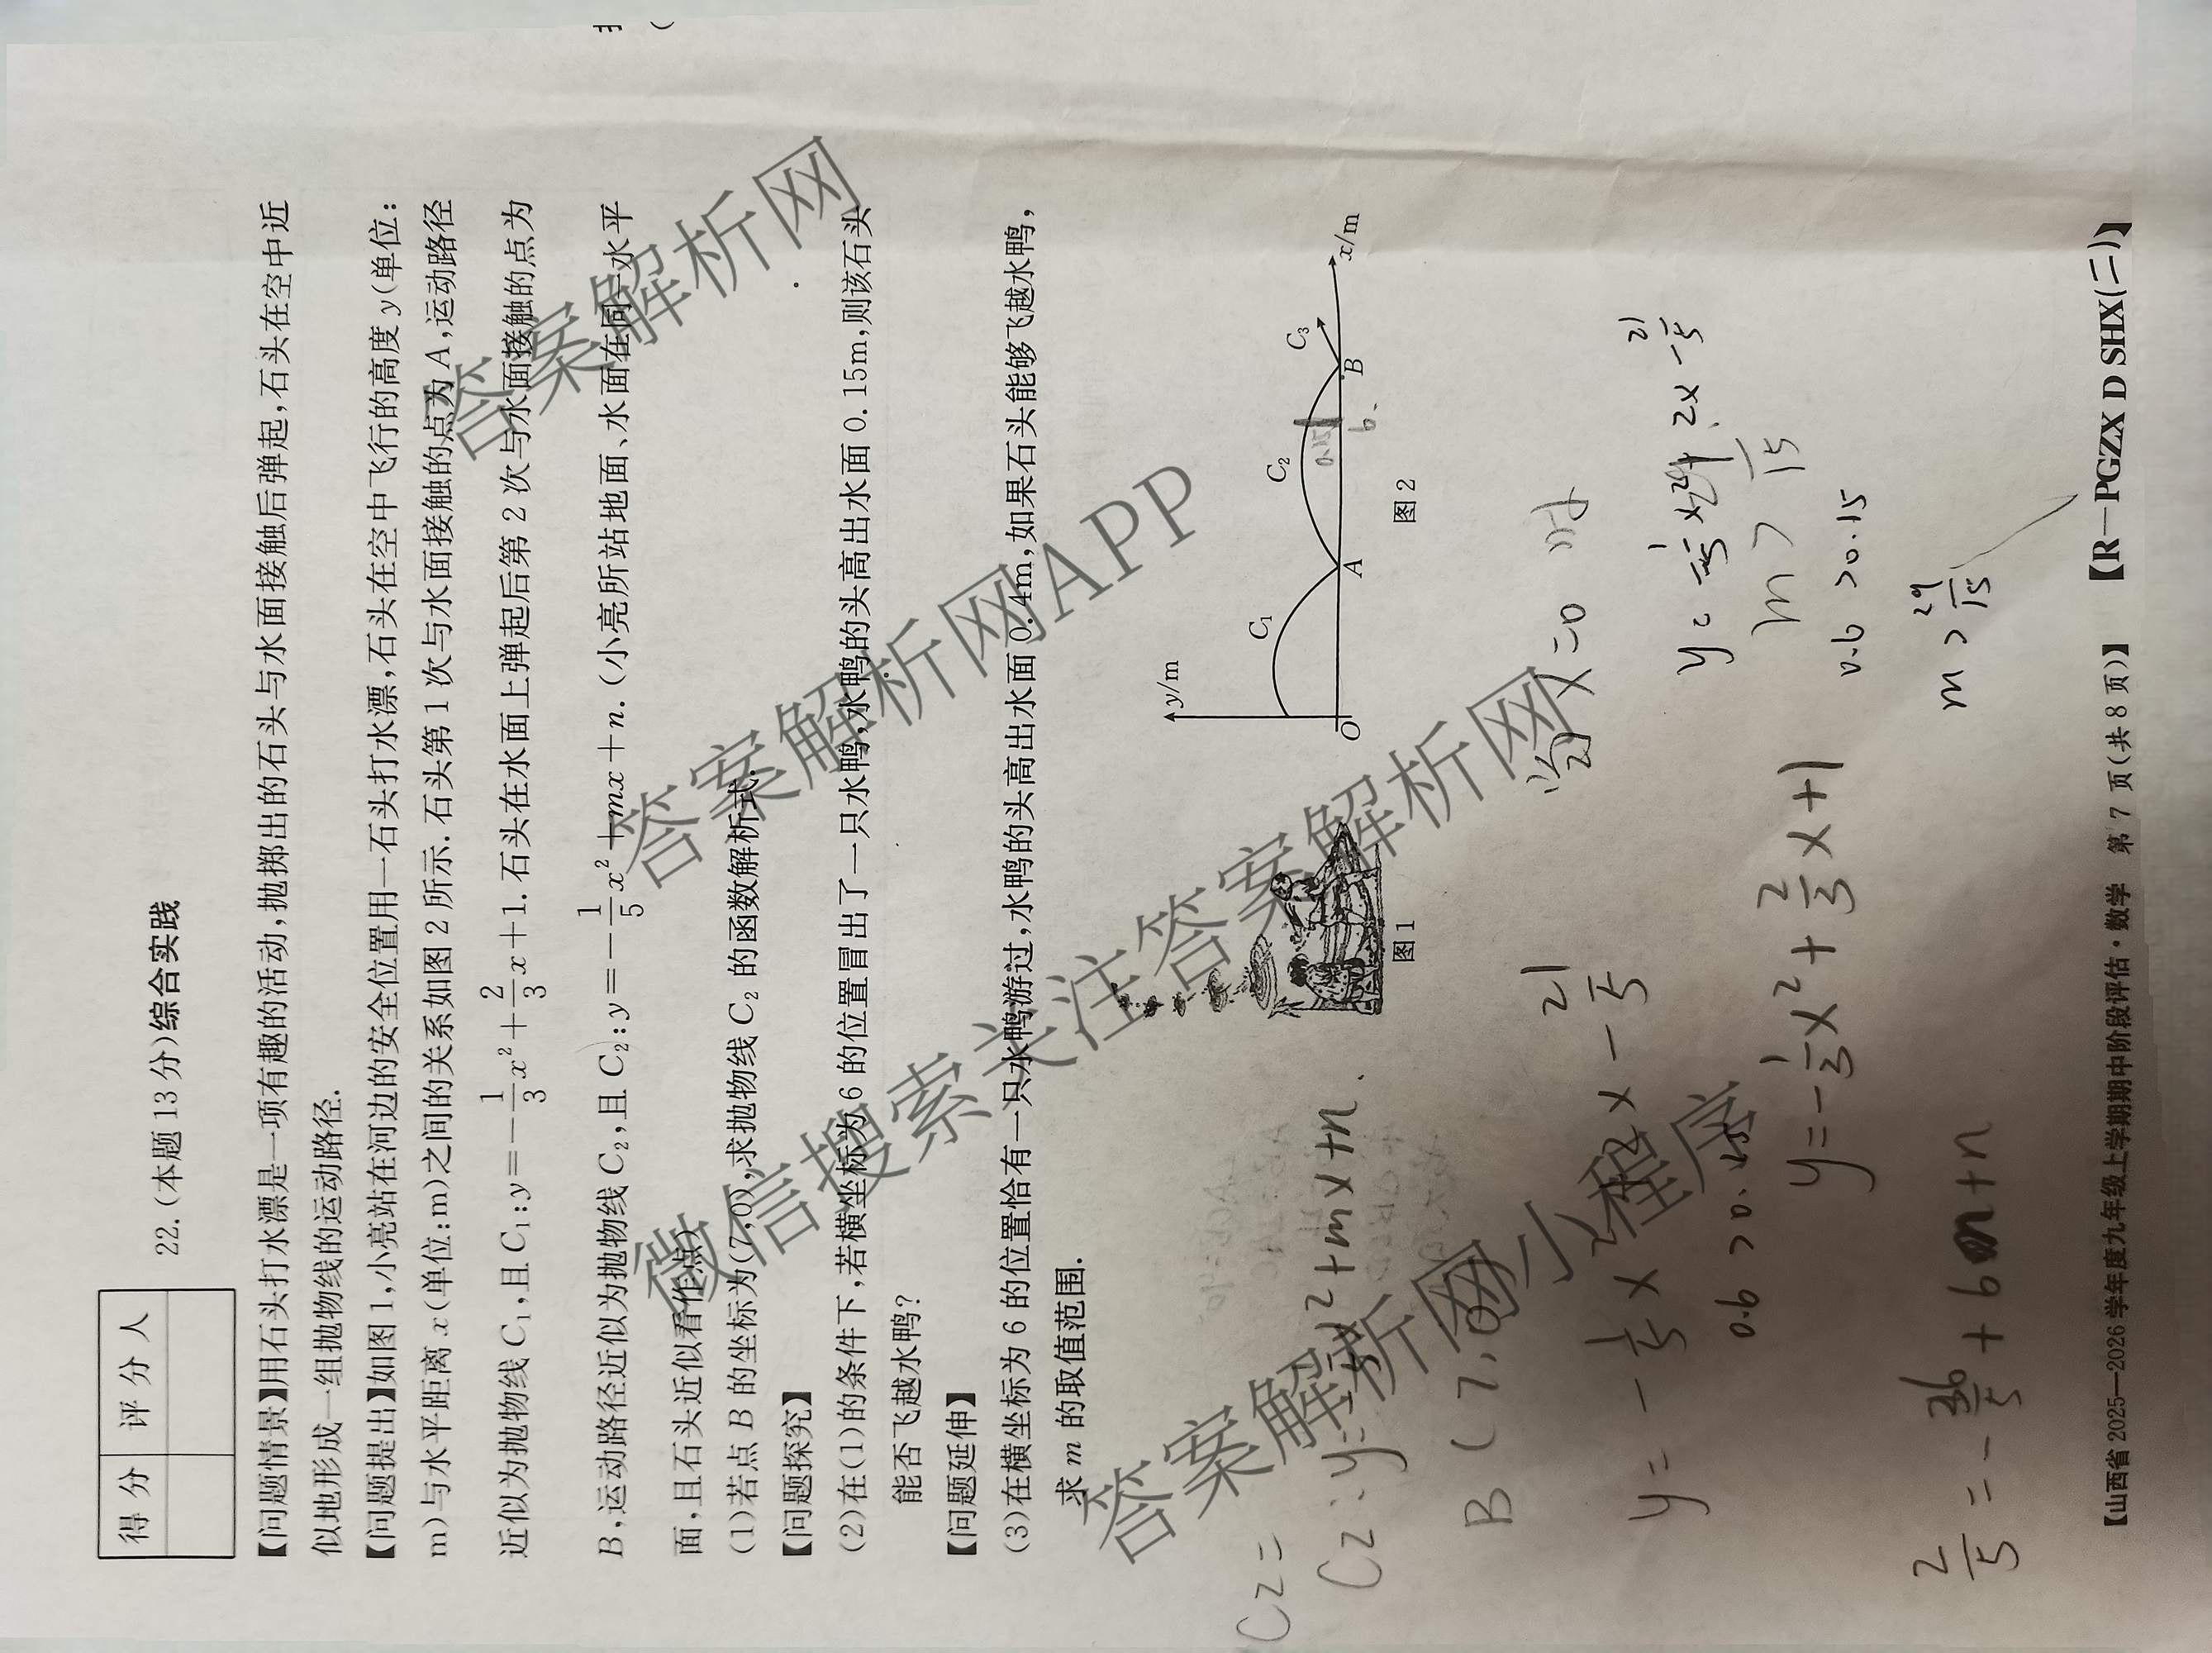 得分 评分人
22.(本题13分)综合实践
【问题情景】用石头打水漂是一项有趣的活动,抛掷出的石头与水面接触后弹起,石头在空中近
似地形成一组抛物线的运动路径.
【问题提出】如图1,小亮站在河边的安全位置用一石头打水漂,石头在空中飞行的高度y(单位:
m)与水平距离x(单位:m)之间的关系如图2所示.石头第1次与水面接触的点为A,运动路径
近似为抛物线C₁,且C₁:y=-1/3x²+2/3x+1.石头在水面上弹起后第2次与水面接触的点为
B,运动路径近似为抛物线C₂,且C₂:y=-1/5x²+mx+n.(小亮所站地面、水面在同一水平
面,且石头近似看作点)
(1)若点B的坐标为(7,0),求抛物线C₂的函数解析式.
【问题探究】
(2)在(1)的条件下,若横坐标为6的位置冒出了一只水鸭,水鸭的头高出水面0.15m,则该石头
能否飞越水鸭?
【问题延伸】
(3)在横坐标为6的位置恰有一只水鸭游过,水鸭的头高出水面0.4m,如果石头能够飞越水鸭,
求m的取值范围.
y/m
C₁
C₂
C₃
0.15
6.
O
A
B
x/m
图1
图2
C2=
C2:y=-1/5x²+mx+n.
B(7,0)
y=-1/5x²+2x-21/5
0.6>0.15
y=-1/3x²+2/3x+1
2/5=-36/5+6m+n
当x=0时
m>29/15
0.6>0.15
m>29/15
【山西省2025—2026学年度九年级上学期期中阶段评估·数学 第7页(共8页)】 【R-PGZX D SHX(二)】
答案解析网
答案解析网APP
微信搜索关注答案解析网
答案解析网小程序